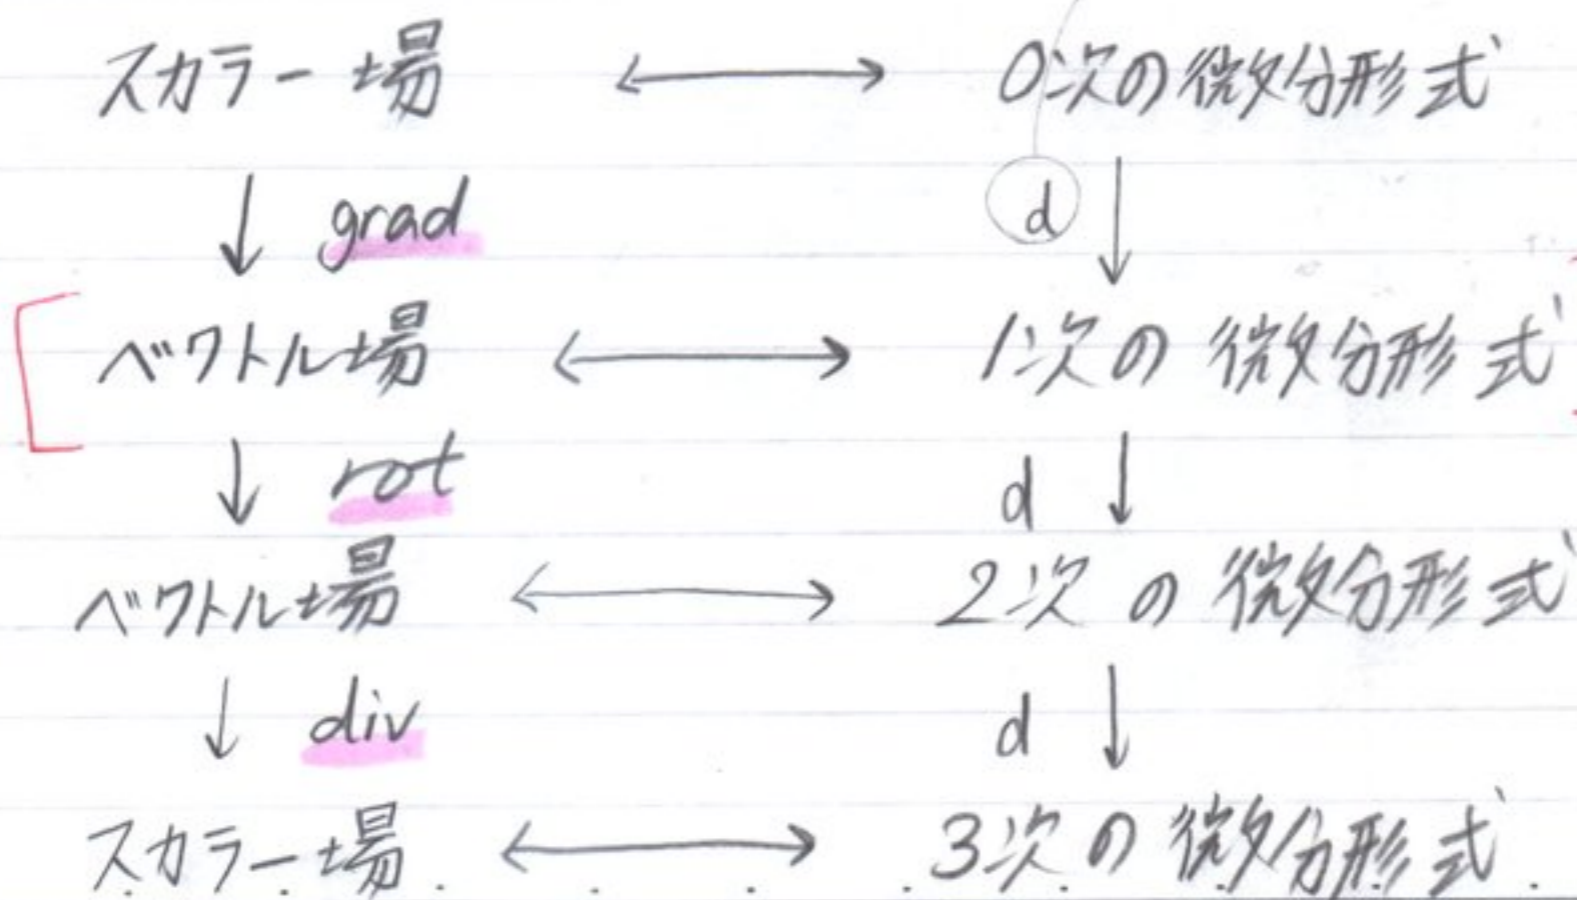 スカラー場 ⟷ 0次の微分形式
↓ grad d ↓
ベクトル場 ⟷ 1次の微分形式
↓ rot d ↓
ベクトル場 ⟷ 2次の微分形式
↓ div d ↓
スカラー場 ⟷ 3次の微分形式